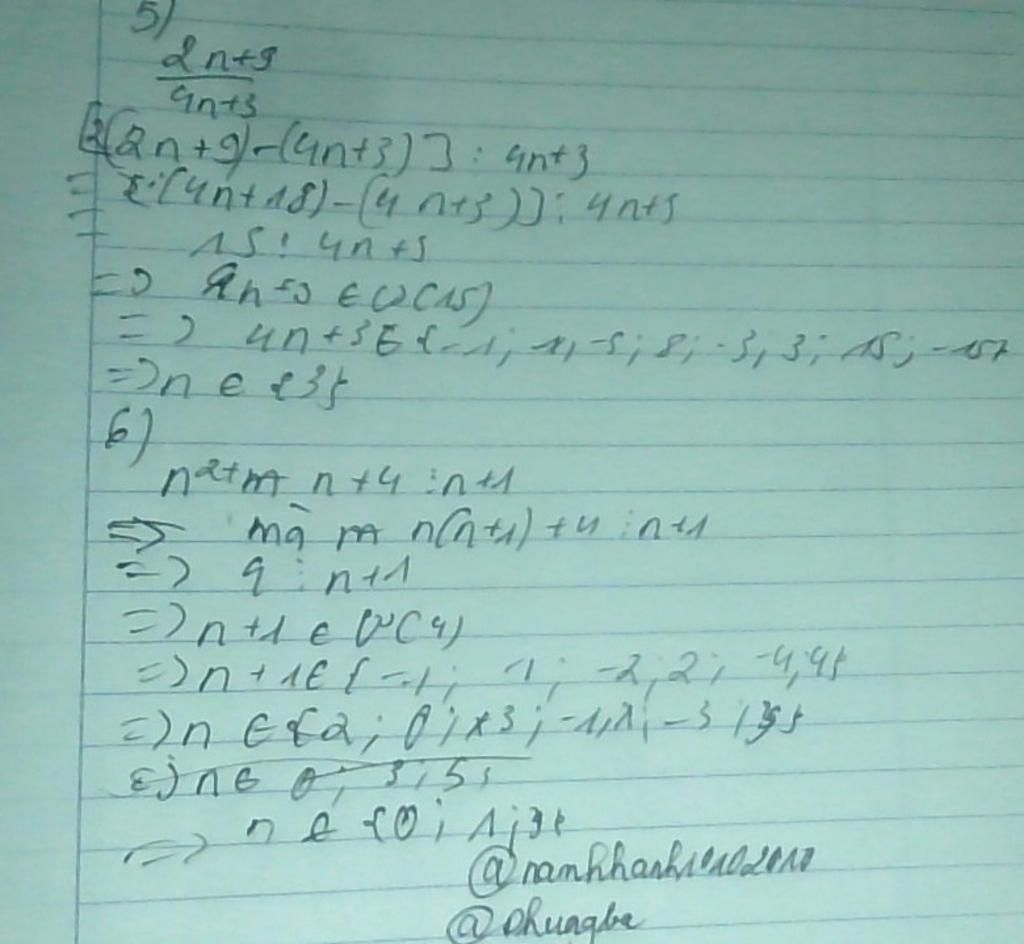 5)
2n+9
4n+3
[2(2n+9)-(4n+3)] : 4n+3
= [(4n+18)-(4n+3)] : 4n+3
= 15 ⋮ 4n+3
=> 4n+3 ∈ Ư(15)
=> 4n+3 ∈ {-1; 1; -5; 5; -3; 3; 15; -15}
=> n ∈ {3}
6)
n²+ n+4 ⋮ n+1
=> mà n(n+1)+4 ⋮ n+1
=> 4 ⋮ n+1
=> n+1 ∈ Ư(4)
=> n+1 ∈ {-1; 1; -2; 2; -4; 4}
=> n ∈ {2; 0; -3; -1; -3;
n ∈ 0; 3; 5;
=> n ∈ {0; 1; 3}
@namkhanh10102010
@Phuagbe